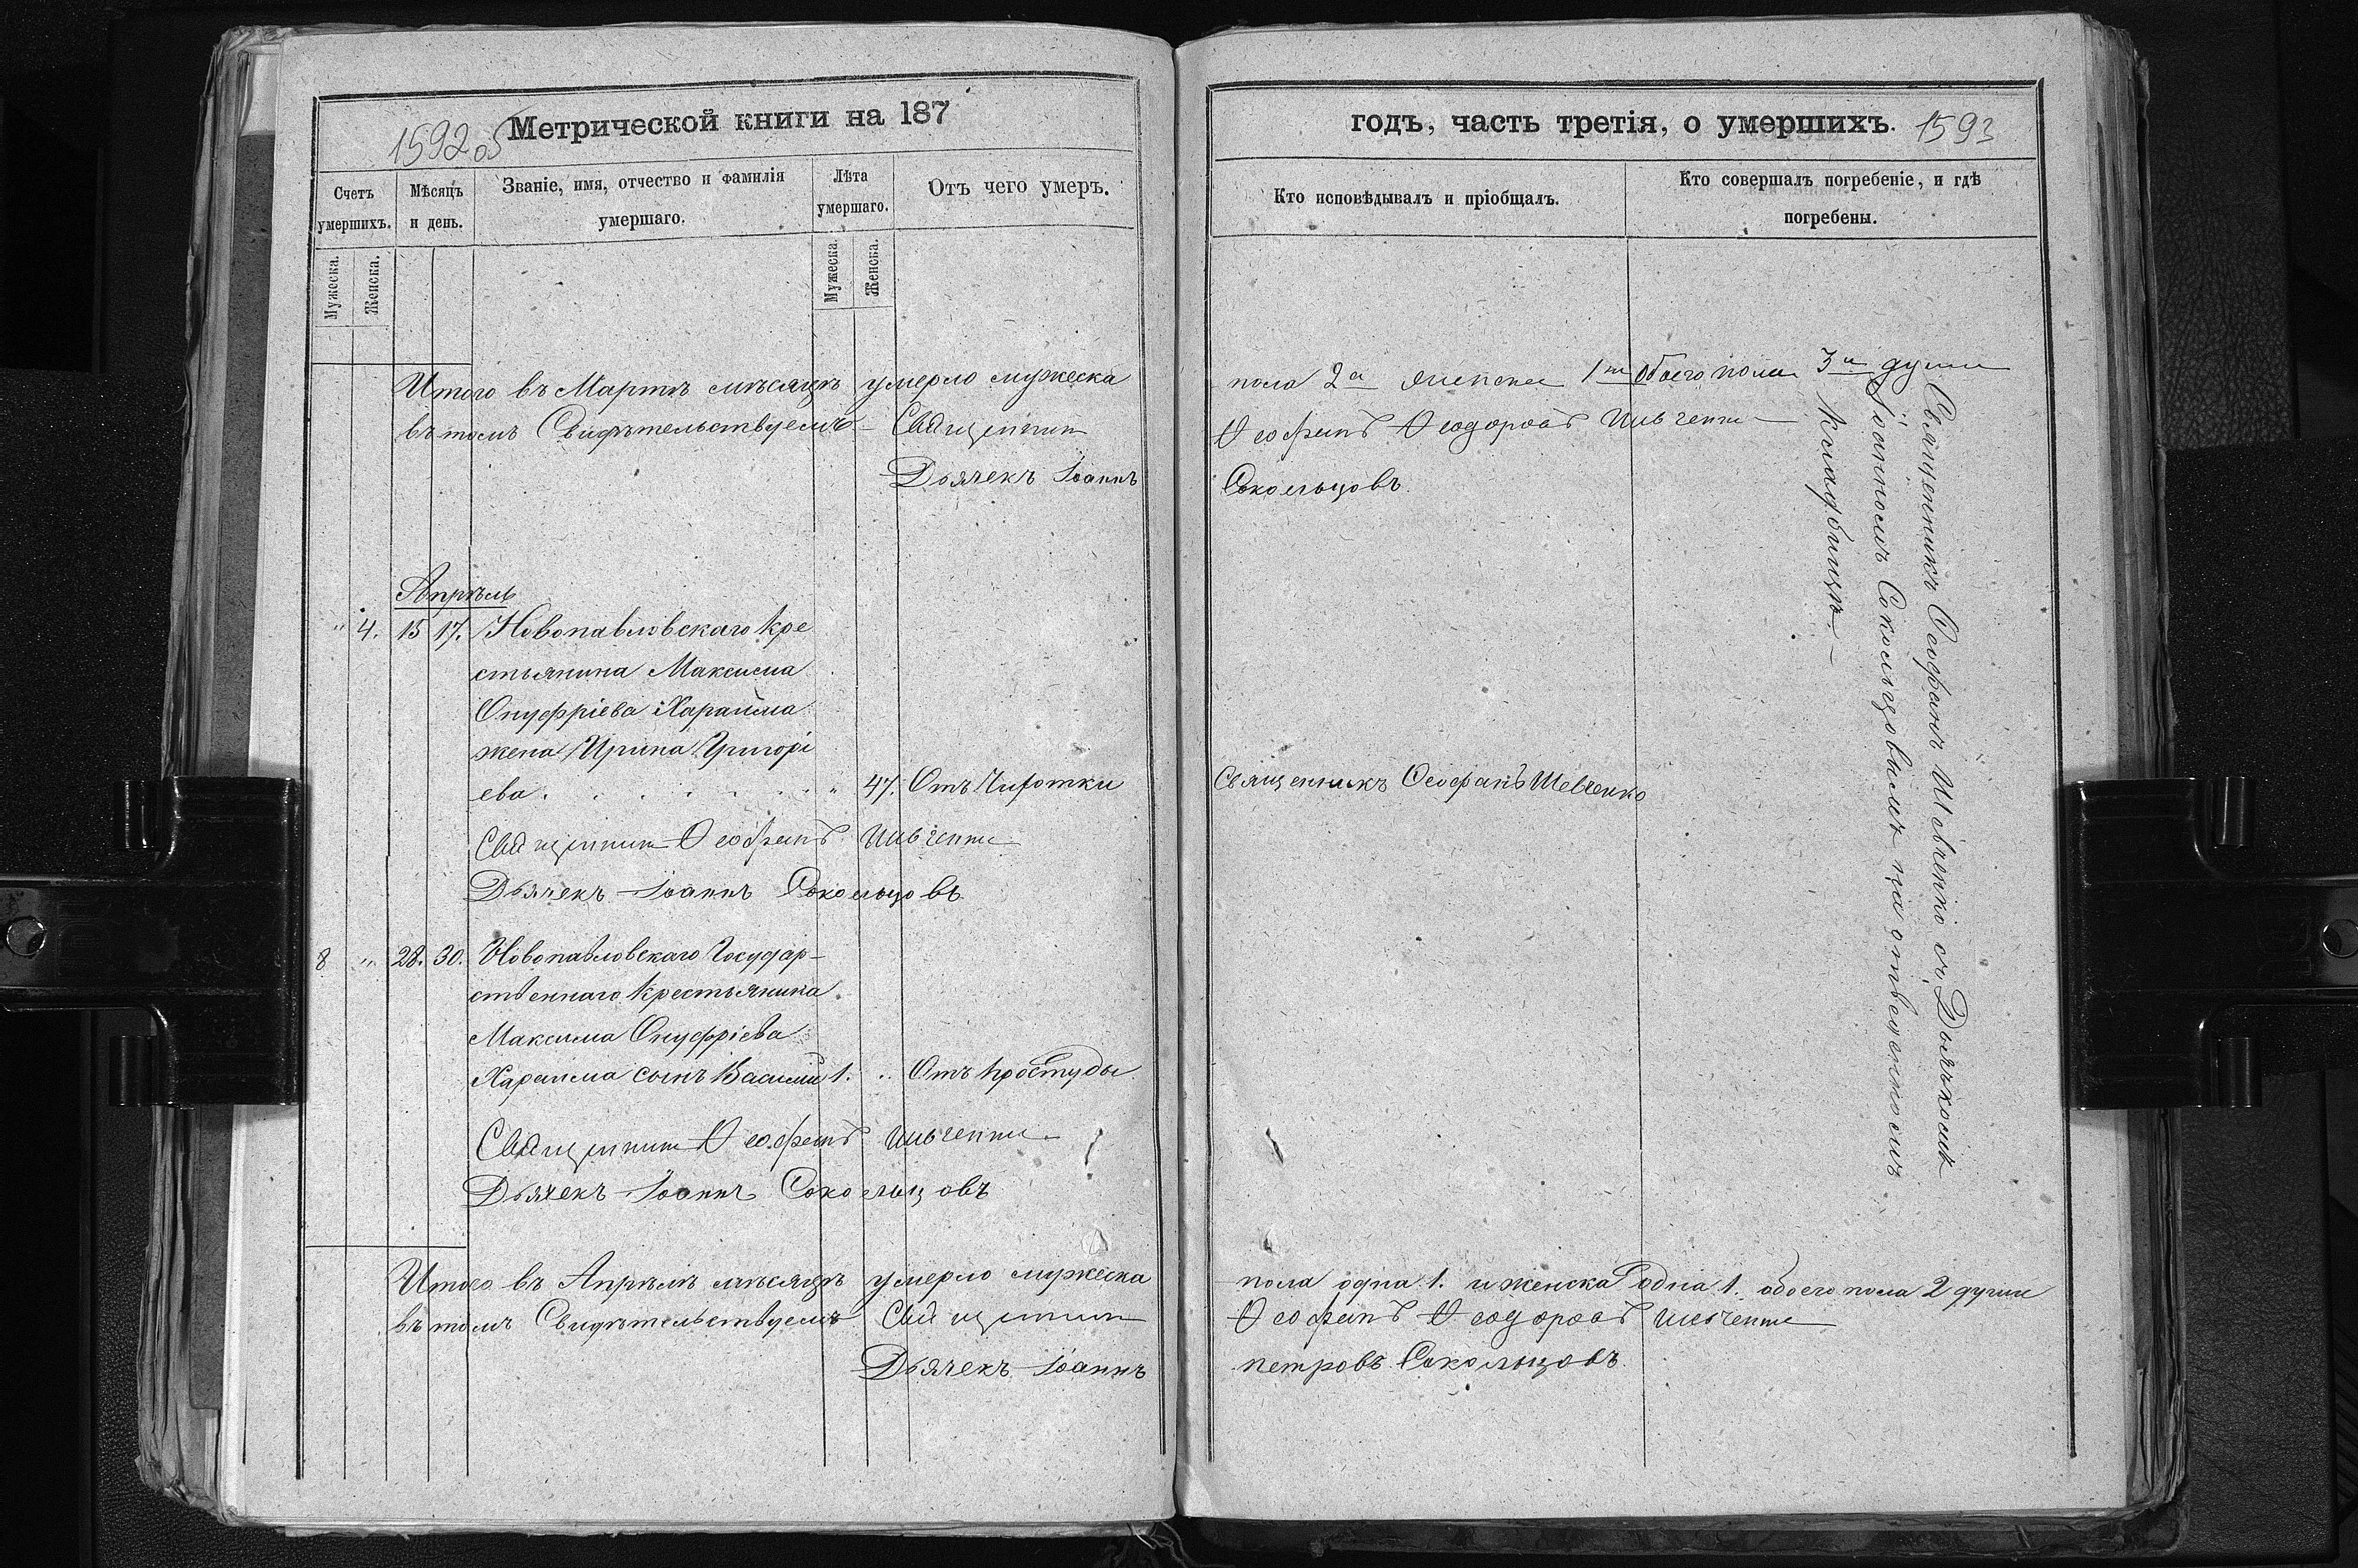 Метрической книги на 187
1592 об
Счетъ умершихъ.
Мѣсяцъ и день.
Званіе, имя, отчество и фамилія умершаго.
Лѣта умершаго.
Отъ чего умеръ.
Мужеска.
Женска.
Мужеска.
Женска.
Итого въ Мартѣ мѣсяцѣ умерло мужеска
въ томъ Свидѣтельствуемъ Священник
Дьячекъ Іоаннъ
Апрѣль
" 4. 15 17. Новопавловскаго Кре
стьянина Максима
Онуфріева Хараима
жена Ирина Григорі
ева. " 47. Отъ
Священник Ѳеофанъ Шевченко
Дьячекъ Іоаннъ Сокольцовъ
8 " 28. 30. Новопавловскаго Государ-
ственнаго Крестьянина
Максима Онуфріева
Хараима сынъ Василій 1. " Отъ простуды
Священник Ѳеофанъ Шевченко
Дьячекъ Іоаннъ Сокольцовъ
Итого въ Апрѣлѣ мѣсяцѣ умерло мужеска
въ томъ Свидѣтельствуемъ Священник
Дьячекъ Іоаннъ
годъ, часть третія, о умершихъ.
1593
Кто исповѣдывалъ и пріобщалъ.
Кто совершалъ погребеніе, и гдѣ погребены.
пола 2а женска 1на обоего пола 3и души
Ѳеофанъ Ѳеодоровъ Шевченко
Сокольцовъ.
Священникъ Ѳеофанъ Шевченко
Священникъ Ѳеофанъ Шевченко съ Дьячкомъ
Іоанномъ Сокольцовымъ на отведенномъ
Кладбищѣ.
пола одна 1. и женска одна 1. обоего пола 2 души
Ѳеофанъ Ѳеодоровъ Шевченко
петровъ Сокольцовъ.